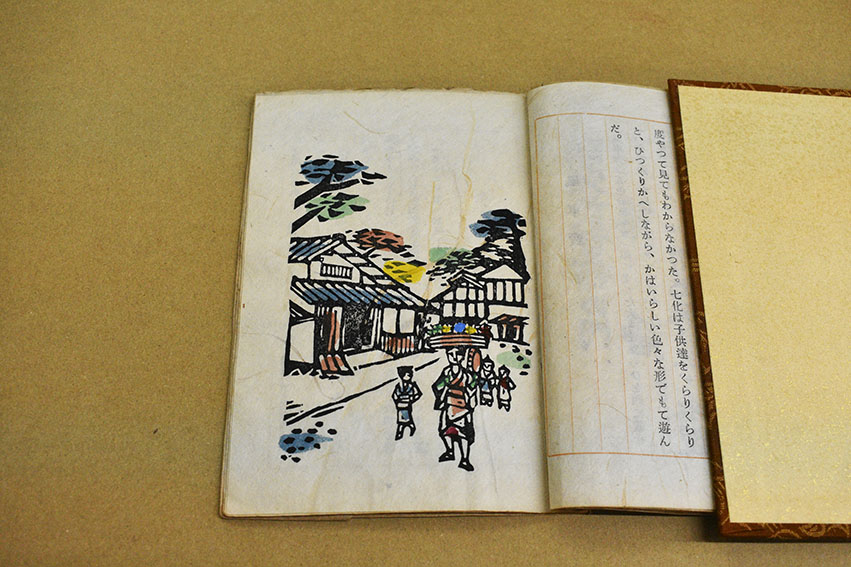 度やつて見てもわからなかつた。七化は子供達をくらりくらり
と、ひつくりかへしながら、かはいらしい色々な形でもて遊ん
だ。